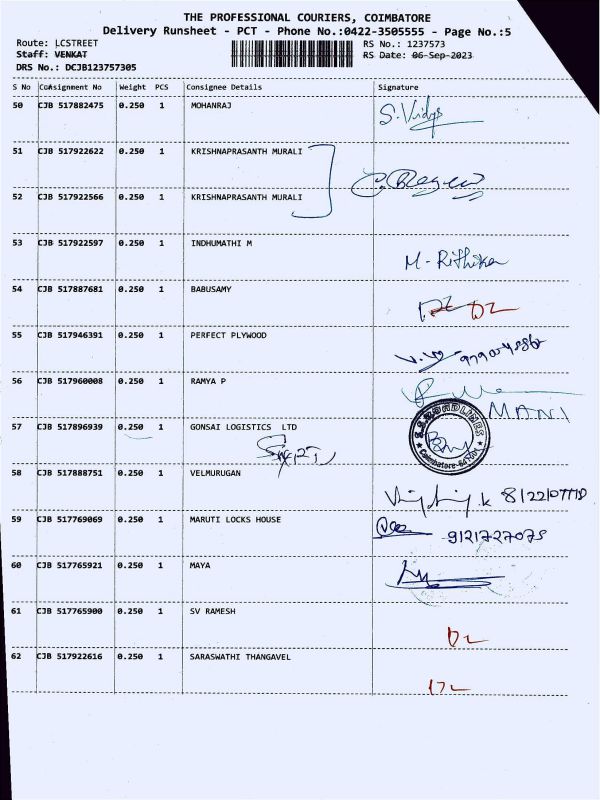 THE PROFESSIONAL COURIERS, COIMBATORE
Delivery Runsheet - PCT - Phone No.:0422-3505555 - Page No.:5
Route: LCSTREET RS No.: 1237573
Staff: VENKAT RS Date: 06-Sep-2023
DRS No.: DCJB123757305
S No Consignment No Weight PCS Consignee Details Signature
50 CJB 517882475 0.250 1 MOHANRAJ S. Vidya
51 CJB 517922622 0.250 1 KRISHNAPRASANTH MURALI
52 CJB 517922566 0.250 1 KRISHNAPRASANTH MURALI
53 CJB 517922597 0.250 1 INDHUMATHI M M - Rithika
54 CJB 517887681 0.250 1 BABUSAMY
55 CJB 517946391 0.250 1 PERFECT PLYWOOD
56 CJB 517960008 0.250 1 RAMYA P
MANI
57 CJB 517896939 0.250 1 GONSAI LOGISTICS LTD
58 CJB 517888751 0.250 1 VELMURUGAN
59 CJB 517769069 0.250 1 MARUTI LOCKS HOUSE 9121727075
60 CJB 517765921 0.250 1 MAYA
61 CJB 517765900 0.250 1 SV RAMESH
62 CJB 517922616 0.250 1 SARASWATHI THANGAVEL